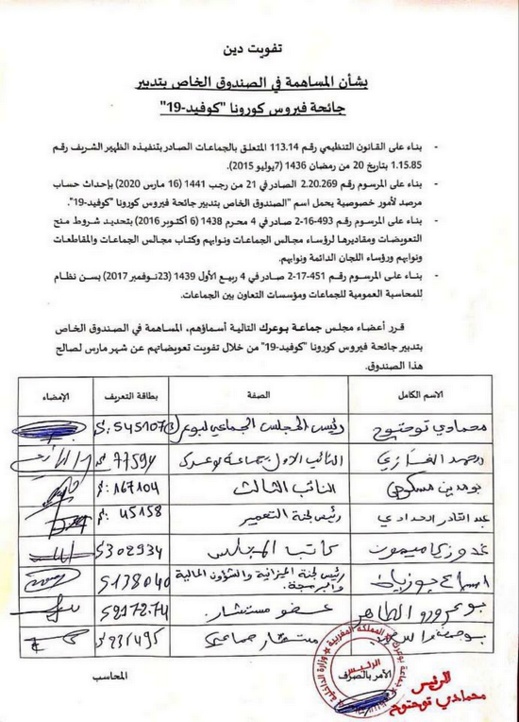 تفويت دين
بشأن المساهمة في الصندوق الخاص بتدبير
جائحة فيروس كورونا "كوفيد-19"
- بناء على القانون التنظيمي رقم 113.14 المتعلق بالجماعات الصادر بتنفيذه الظهير الشريف رقم
1.15.85 بتاريخ 20 من رمضان 1436 (7يوليو 2015).
- بناء على المرسوم رقم 2.20.269 الصادر في 21 من رجب 1441 (16 مارس 2020) بإحداث حساب
مرصد لأمور خصوصية يحمل اسم "الصندوق الخاص بتدبير جائحة فيروس كورونا "كوفيد-19".
- بناء على المرسوم رقم 2-16-493 صادر في 4 محرم 1438 (6 أكتوبر 2016) بتحديد شروط منح
التعويضات ومقاديرها لرؤساء مجالس الجماعات ونوابهم وكتاب مجالس الجماعات والمقاطعات
ونوابهم ورؤساء اللجان الدائمة ونوابهم.
- بناء على المرسوم رقم 2-17-451 صادر في 4 ربيع الأول 1439 (23نوفمبر 2017) بسن نظام
للمحاسبة العمومية للجماعات ومؤسسات التعاون بين الجماعات.
قرر أعضاء مجلس جماعة بوعرك التالية أسماؤهم، المساهمة في الصندوق الخاص
بتدبير جائحة فيروس كورونا "كوفيد-19" من خلال تفويت تعويضاتهم عن شهر مارس لصالح
هذا الصندوق.
الاسم الكامل الصفة بطاقة التعريف الإمضاء
محمادي توحتوح رئيس المجلس الجماعي لبوعرك
محمد الغازي النائب الاول جماعة بوعرك S.77594
بومدين النائب الثالث S.167104
عبد القادر رئيس لجنة التعمير S.45158
ميمون كاتب المجلس S302934
رئيس لجنة الميزانية والشؤون المالية والبرمجة S138040
الطاهر عضو مستشار.
مستشار جماعي S235495
المحاسب
الأمر بالصرف
الرئيس
الرئيس
محمادي توحتوح